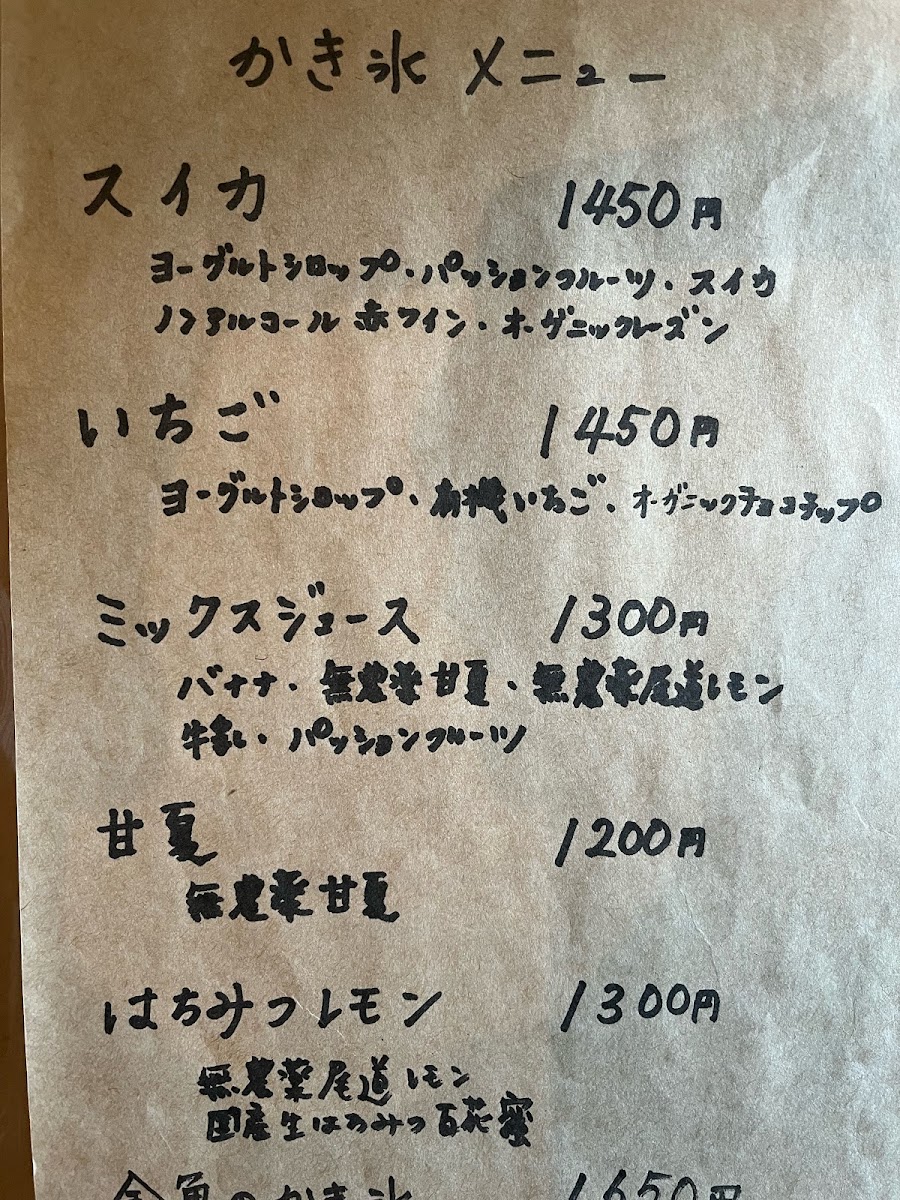 かき氷 メニュー
スイカ 1450円
ヨーグルトシロップ・パッションフルーツ・スイカ
ノンアルコール 赤ワイン・オーガニックレーズン
いちご 1450円
ヨーグルトシロップ・有機いちご・オーガニックチョコチップ
ミックスジュース 1300円
バナナ・無農薬甘夏・無農薬尾道レモン
牛乳・パッションフルーツ
甘夏 1200円
無農薬甘夏
はちみつレモン 1300円
無農薬尾道レモン
国産生はちみつ百花蜜
金魚のかき氷 1650円